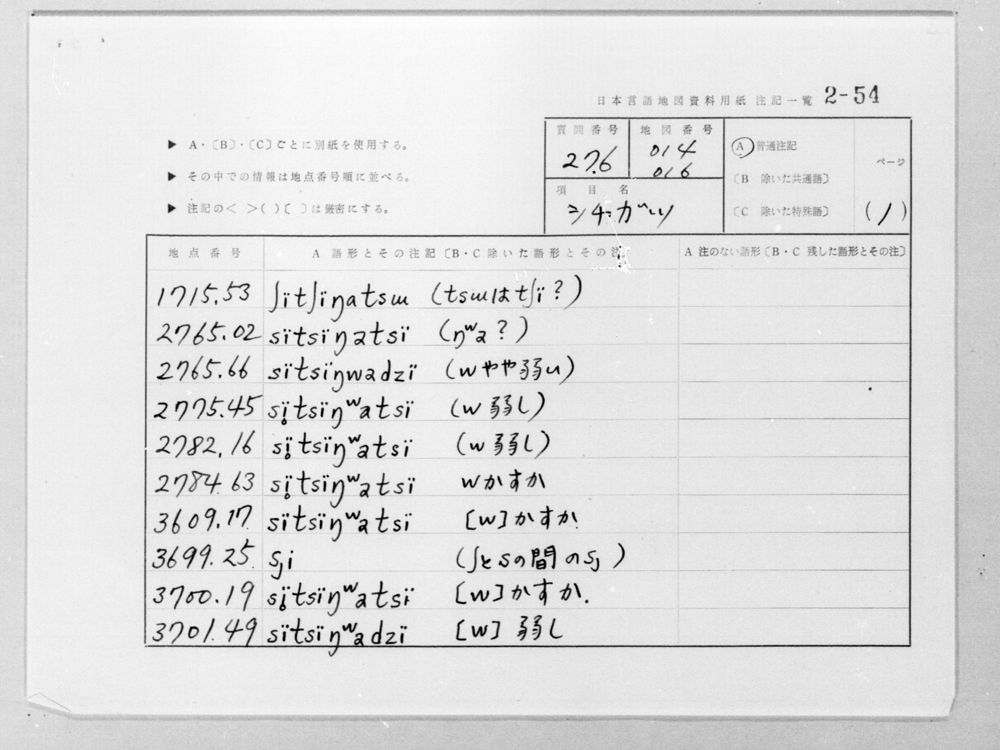 日本言語地図資料用紙 注記一覧 2-54
▶ A・〔B〕・〔C〕ごとに別紙を使用する。
▶ その中での情報は地点番号順に並べる。
▶ 注記の< >( )〔 〕は厳密にする。
質問番号 地図番号
276 014
016
項目名
シチガツ
Ⓐ 普通注記
〔B 除いた共通語〕
〔C 除いた特殊語〕
ページ
(1)
地点番号 A 語形とその注記〔B・C 除いた語形とその注 A 注のない語形〔B・C 残した語形とその注〕
1715.53 ʃïtʃïŋatsɯ (tsɯはtʃï?)
2765.02 sïtsïŋatsï (ŋʷa?)
2765.66 sïtsïŋwadzï (wやや弱い)
2775.45 sï̥tsïŋʷatsï (w弱し)
2782.16 sï̥tsïŋʷatsï (w弱し)
2784.63 sï̥tsïŋʷatsï wかすか
3609.17 sïtsïŋʷatsï [w]かすか
3699.25 sȷi (ʃとsの間のsȷ)
3700.19 sï̥tsïŋʷatsï [w]かすか.
3701.49 sïtsïŋʷadzï [w]弱し